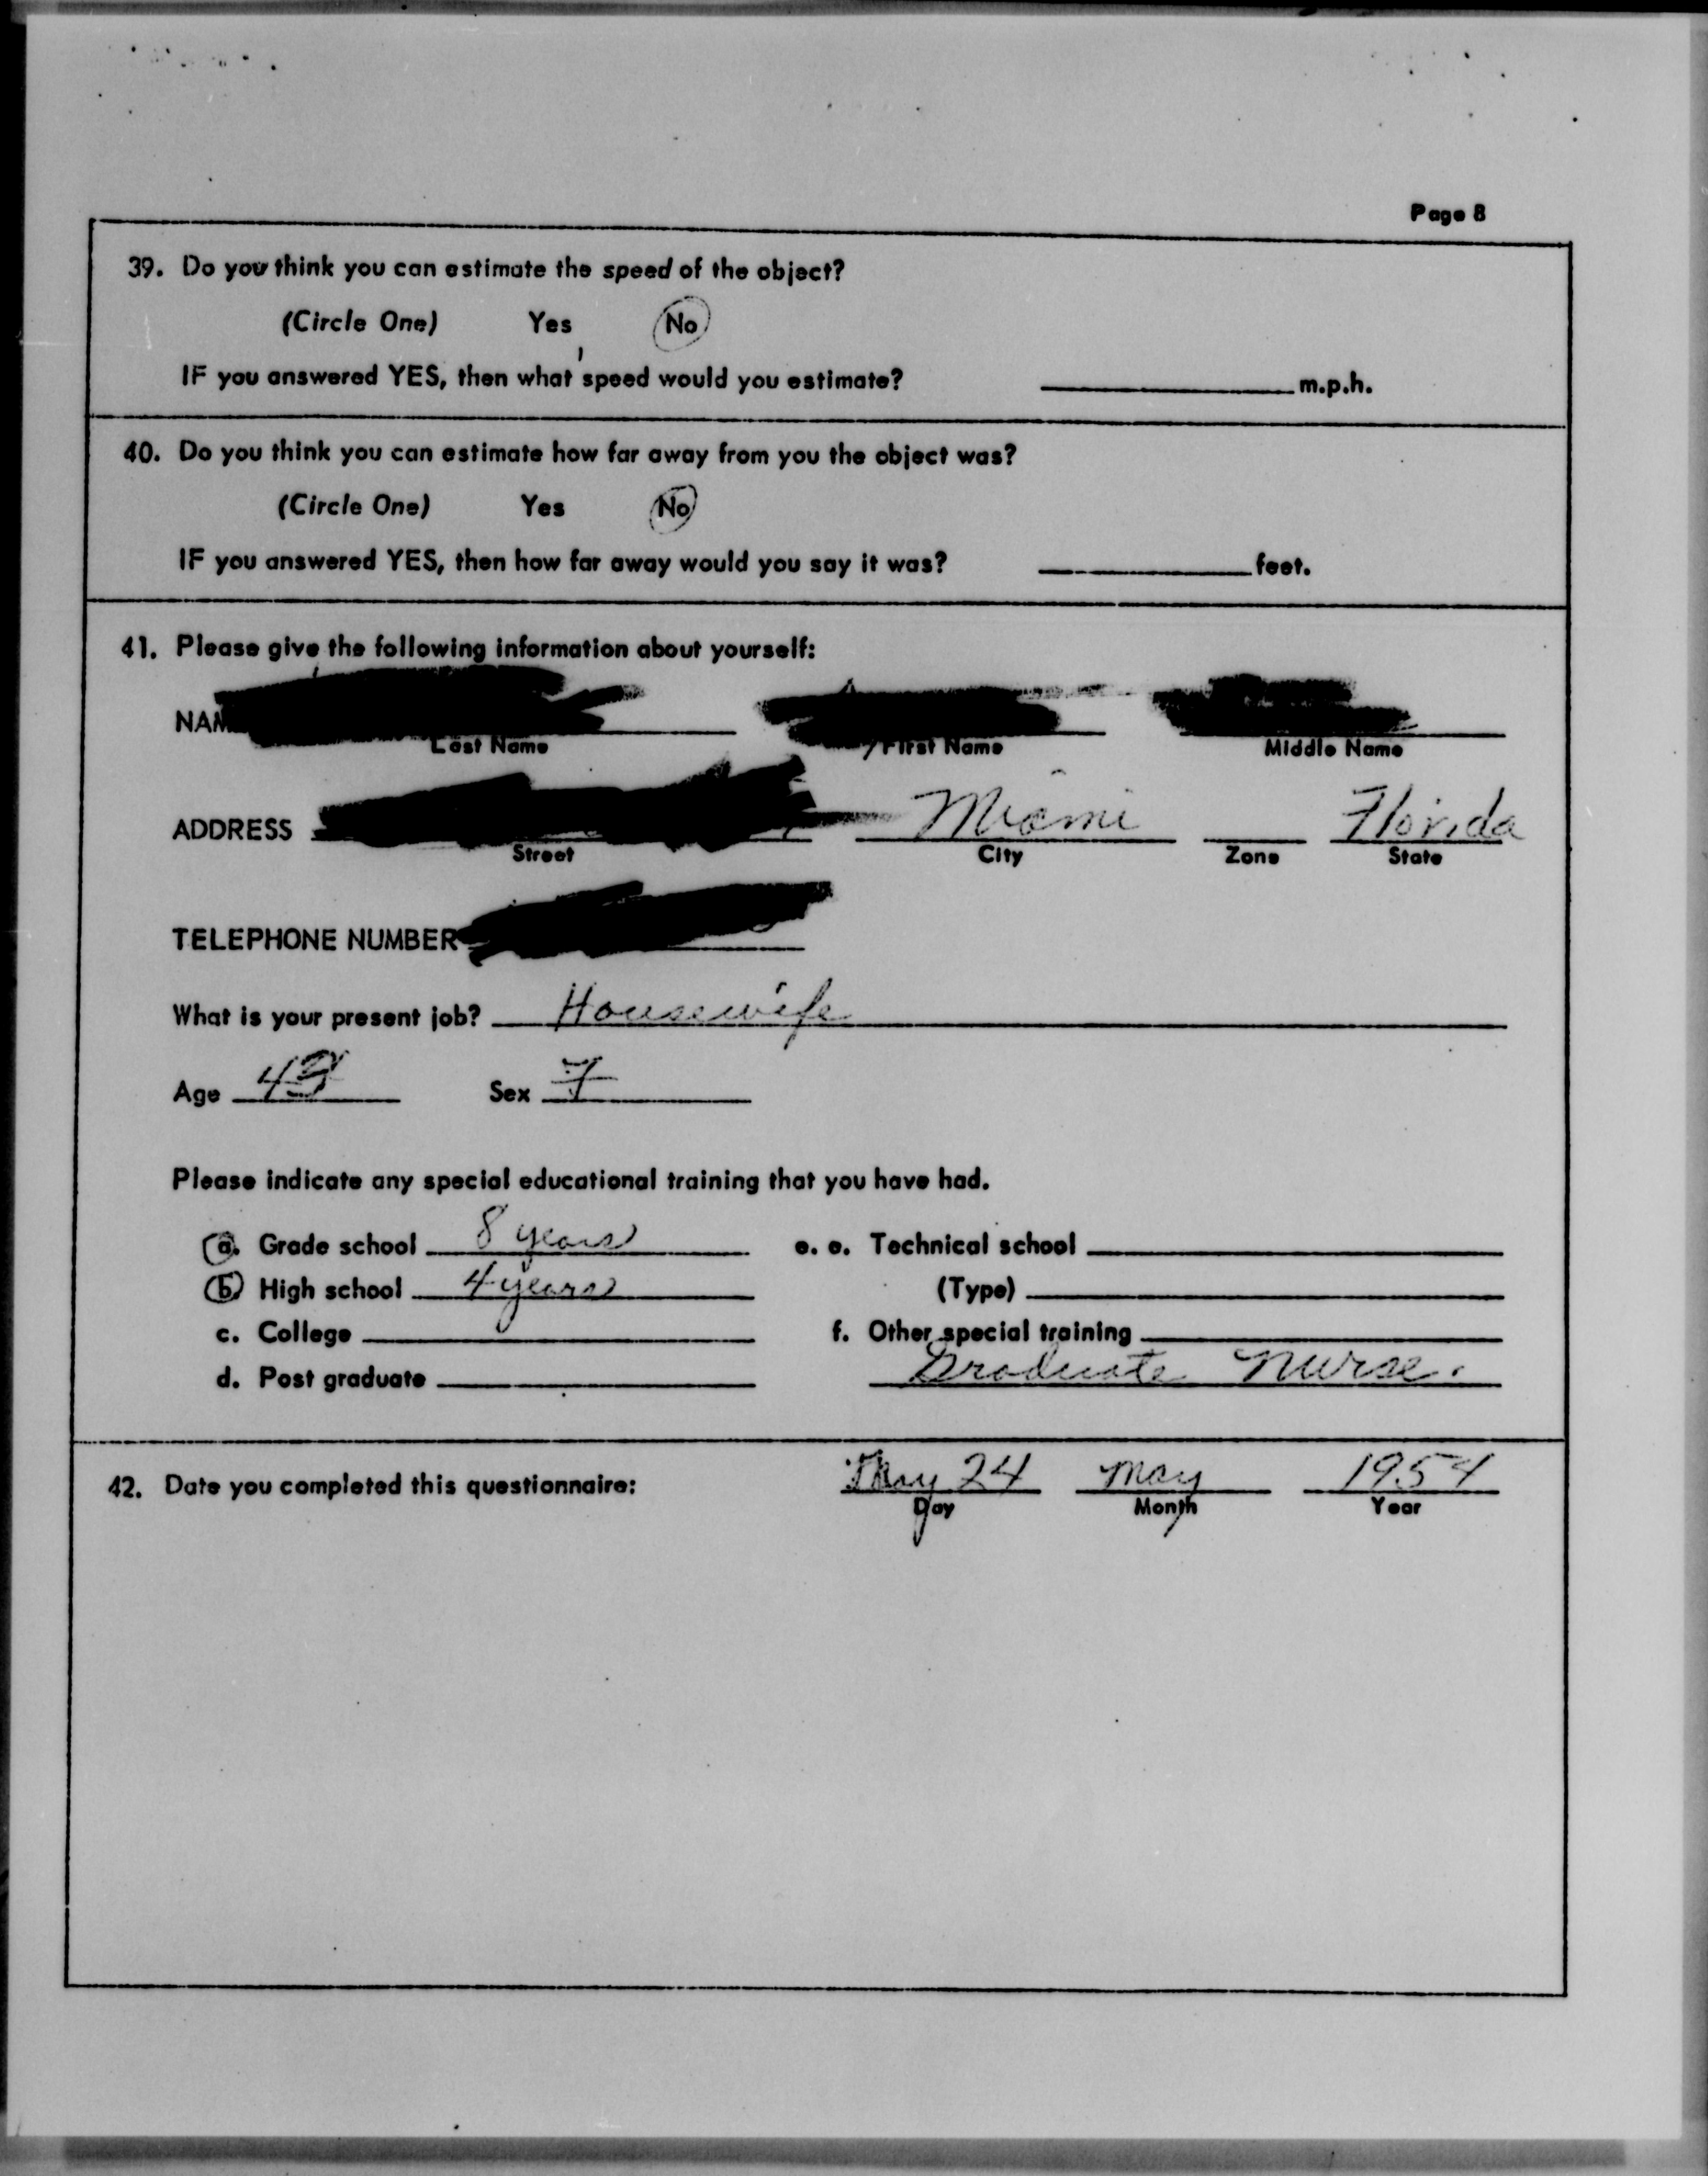 Page 8
39. Do you think you can estimate the speed of the object?
(Circle One) Yes No
IF you answered YES, then what speed would you estimate? m.p.h.
40. Do you think you can estimate how far away from you the object was?
(Circle One) Yes No
IF you answered YES, then how far away would you say it was? feet.
41. Please give the following information about yourself:
NAM
Last Name First Name Middle Name
ADDRESS Miami Florida
Street City Zone State
TELEPHONE NUMBER
What is your present job? Housewife
Age Sex F
Please indicate any special educational training that you have had.
a. Grade school 8 years e. e. Technical school
b. High school 4 years (Type)
c. College f. Other special training
d. Post graduate Graduate Nurse.
42. Date you completed this questionnaire: 24 May 1954
Day Month Year